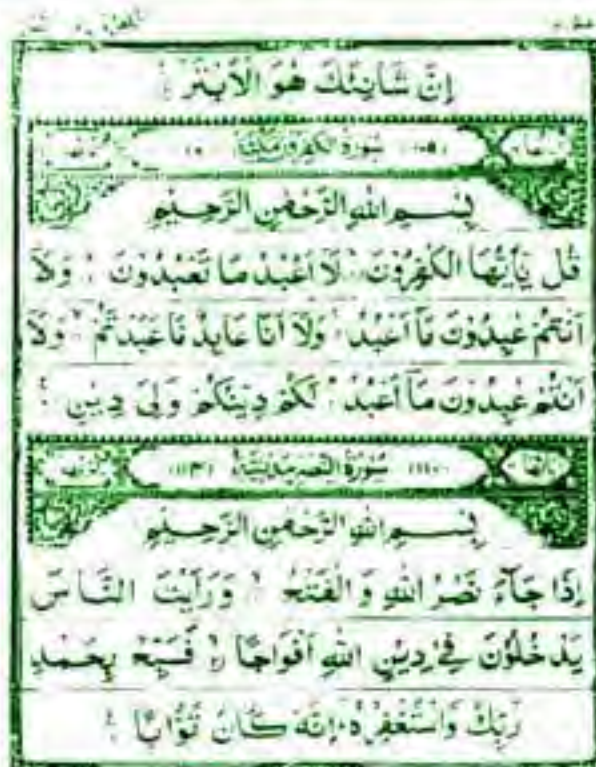 إِنَّ شَانِئَكَ هُوَ الْاَبْتَرُ
سُوْرَةُ الْكٰفِرُوْنَ مَكِّيَّةٌ
بِسْمِ اللهِ الرَّحْمٰنِ الرَّحِيْمِ
قُلْ يٰٓاَيُّهَا الْكٰفِرُوْنَ لَآ اَعْبُدُ مَا تَعْبُدُوْنَ وَلَآ
اَنْتُمْ عٰبِدُوْنَ مَآ اَعْبُدُ وَلَآ اَنَا عَابِدٌ مَّا عَبَدْتُّمْ وَلَآ
اَنْتُمْ عٰبِدُوْنَ مَآ اَعْبُدُ لَكُمْ دِيْنُكُمْ وَلِيَ دِيْنِ
سُوْرَةُ النَّصْرِ مَدَنِيَّةٌ
بِسْمِ اللهِ الرَّحْمٰنِ الرَّحِيْمِ
اِذَا جَآءَ نَصْرُ اللهِ وَالْفَتْحُ وَرَاَيْتَ النَّاسَ
يَدْخُلُوْنَ فِيْ دِيْنِ اللهِ اَفْوَاجًا فَسَبِّحْ بِحَمْدِ
رَبِّكَ وَاسْتَغْفِرْهُ اِنَّهٗ كَانَ تَوَّابًا